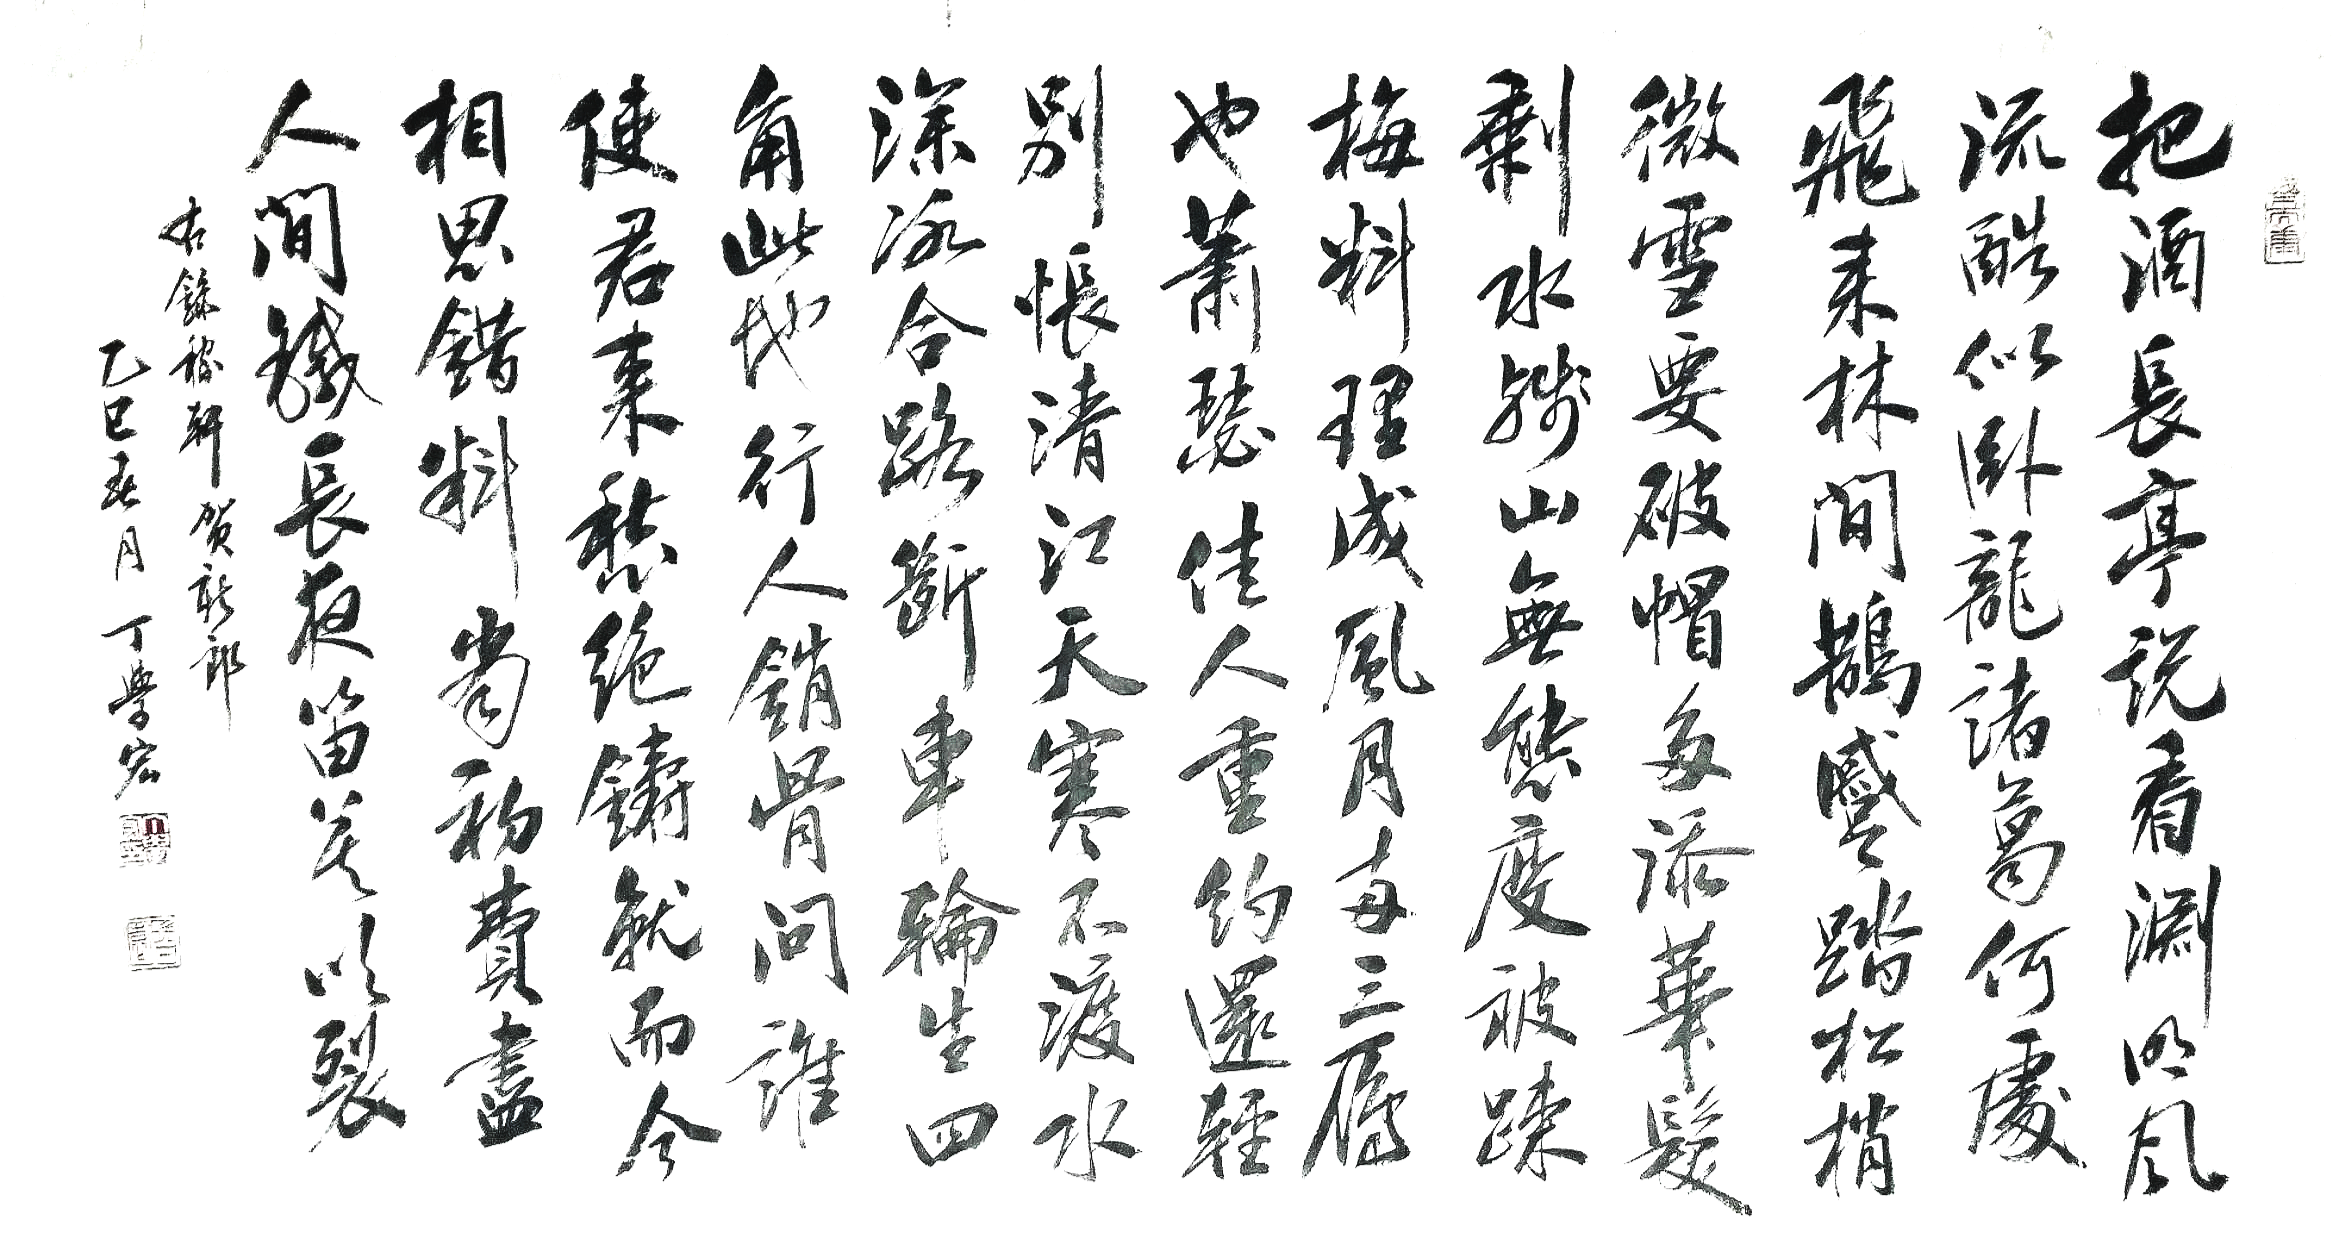 把酒長亭説看淵明風
流酷似臥龍諸葛何處
飛来林間鵲蹙踏松梢
微雪要破帽多添華髮
剩水殘山無態度被踈
梅料理成風月兩三雁
也蕭瑟佳人重約還輕
別悵清江天寒不渡水
深冰合路斷車輪生四
角此地行人銷骨問誰
使君来愁絶鑄就而今
相思錯料當初費盡
人間鐵長夜笛莫吹裂
右錄稼軒賀新郎
乙巳春月丁學宏